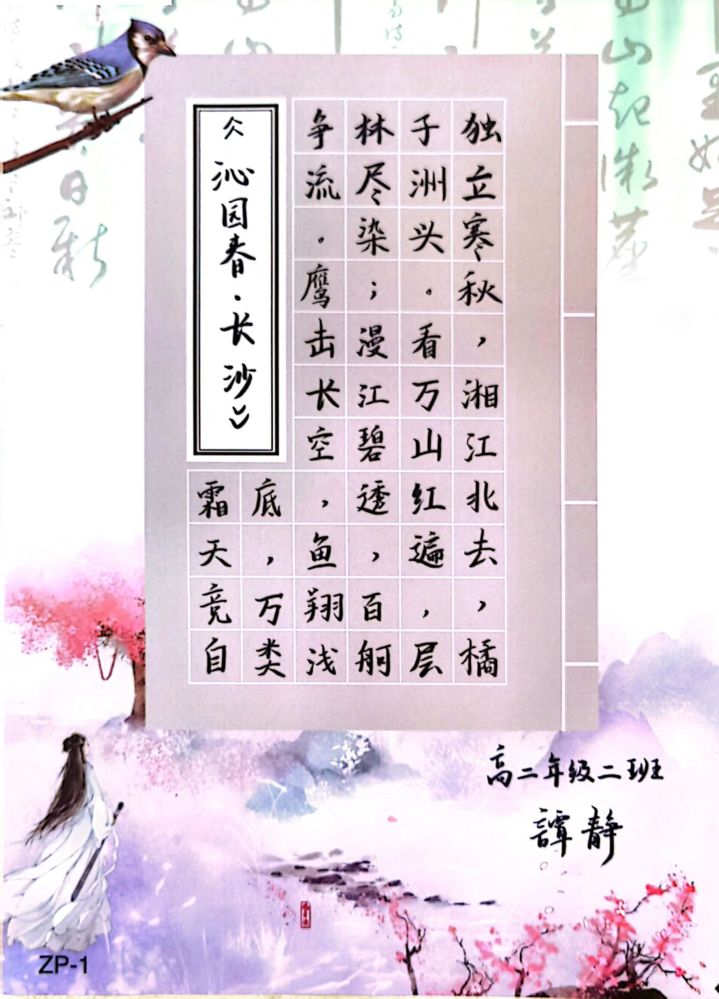 《沁园春·长沙》
独立寒秋，湘江北去，橘
子洲兴。看万山红遍，层
林尽染；漫江碧透，百舸
争流。鹰击长空，鱼翔浅
底，万类
霜天竞自
高二年级二班
譚静
ZP-1